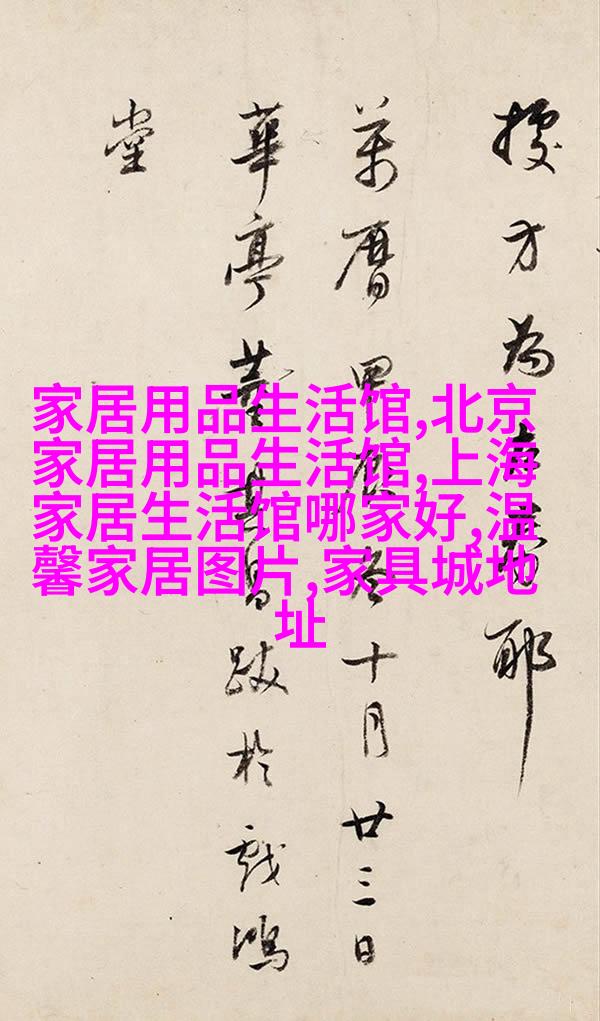 方為耶
萬曆甲辰冬十月廿三日
華亭董其昌跋於戲鴻
堂
家居用品生活馆,北京
家居用品生活馆,上海
家居生活馆哪家好,温
馨家居图片,家具城地
址